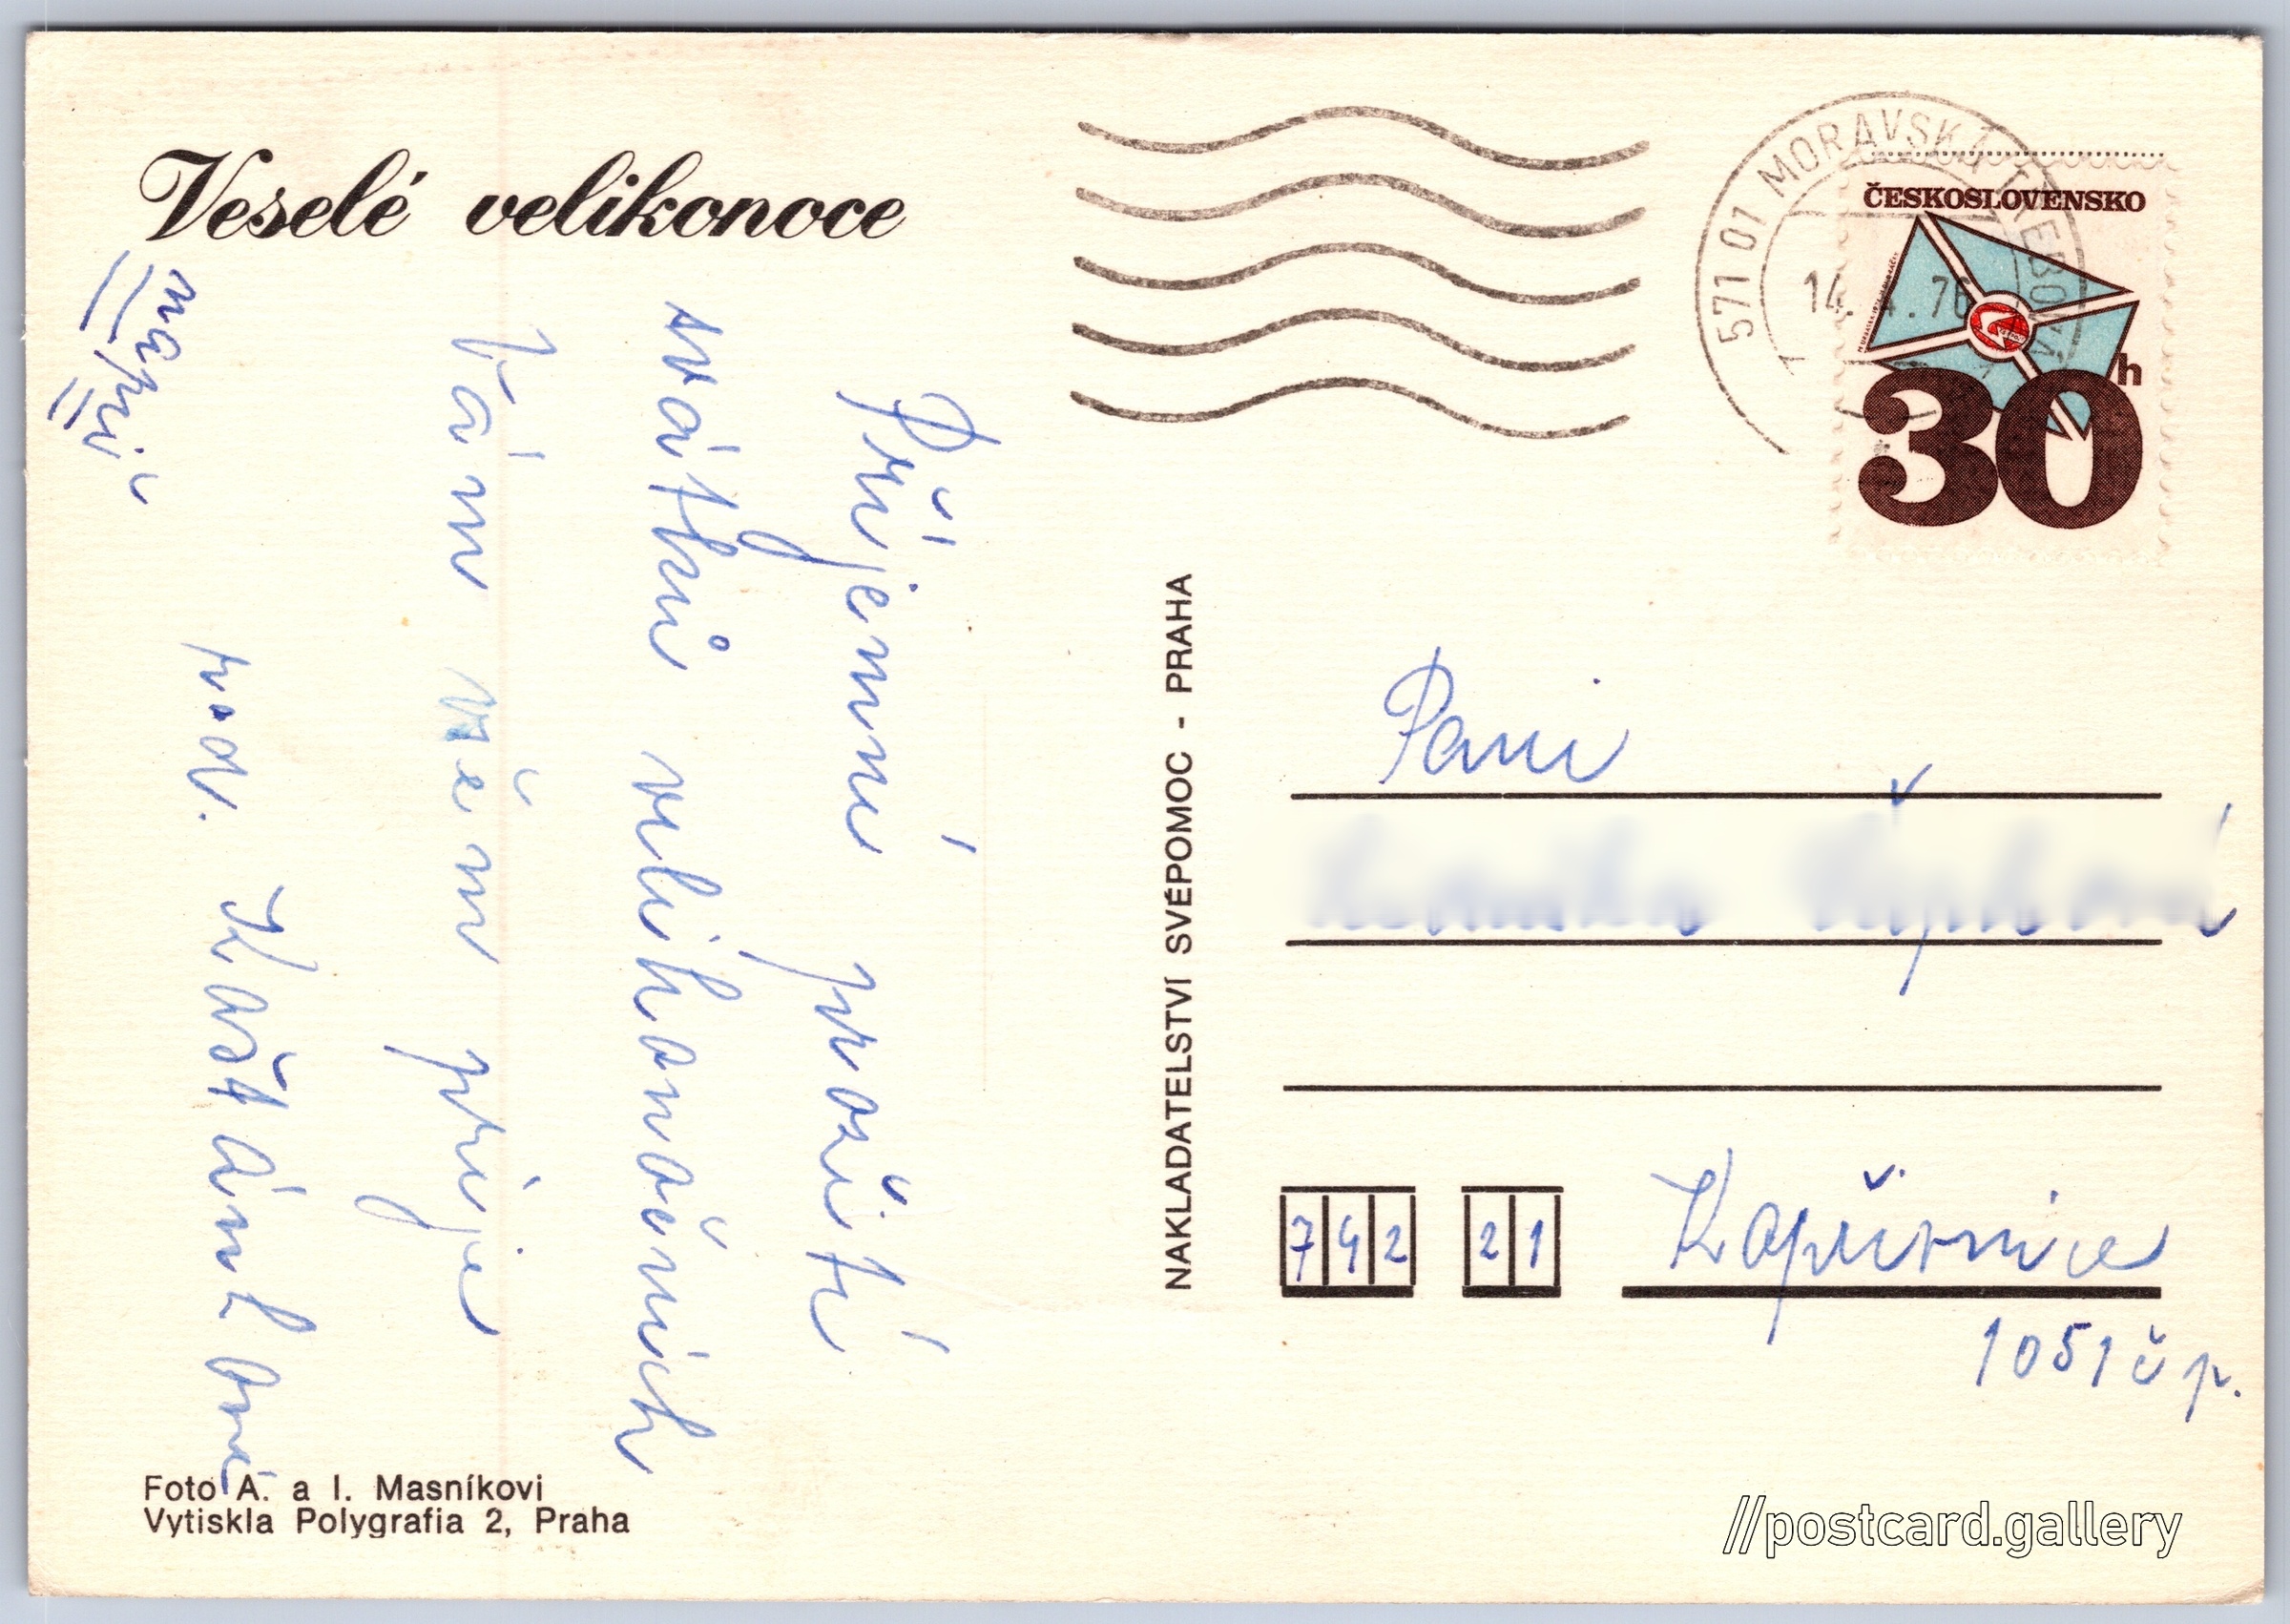 Veselé velikonoce
Příjemné prožití
svátků velikonočních
Vám všem přeje
rod. Kaštánkové
571 01 MORAVSKÁ TŘEBOVÁ
14. 4. 76
ČESKOSLOVENSKO
30 h
NAKLADATELSTVÍ SVÉPOMOC - PRAHA
Paní
742 21 Kopřivnice
1051 čp.
Foto A. a I. Masníkovi
Vytiskla Polygrafia 2, Praha
//postcard.gallery